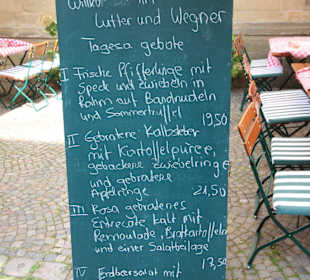 Willko
Lutter und Wegner
Tagesa gebote
I Frische Pfifferlinge mit
Speck und Zwiebeln in
Rahm auf Bandnudeln
und Sommertrüffel
19,50
II Gebratene Kalbsleber
mit Kartoffelpüree,
gebackene Zwiebelringe
und gebratene
Apfelringe 21,50
III Rosa gebratenes
Entrecote kalt mit
Remoulade, Bratkartoffeln
und einer Salatbeilage
17,50
IV Erdbeersalat mit